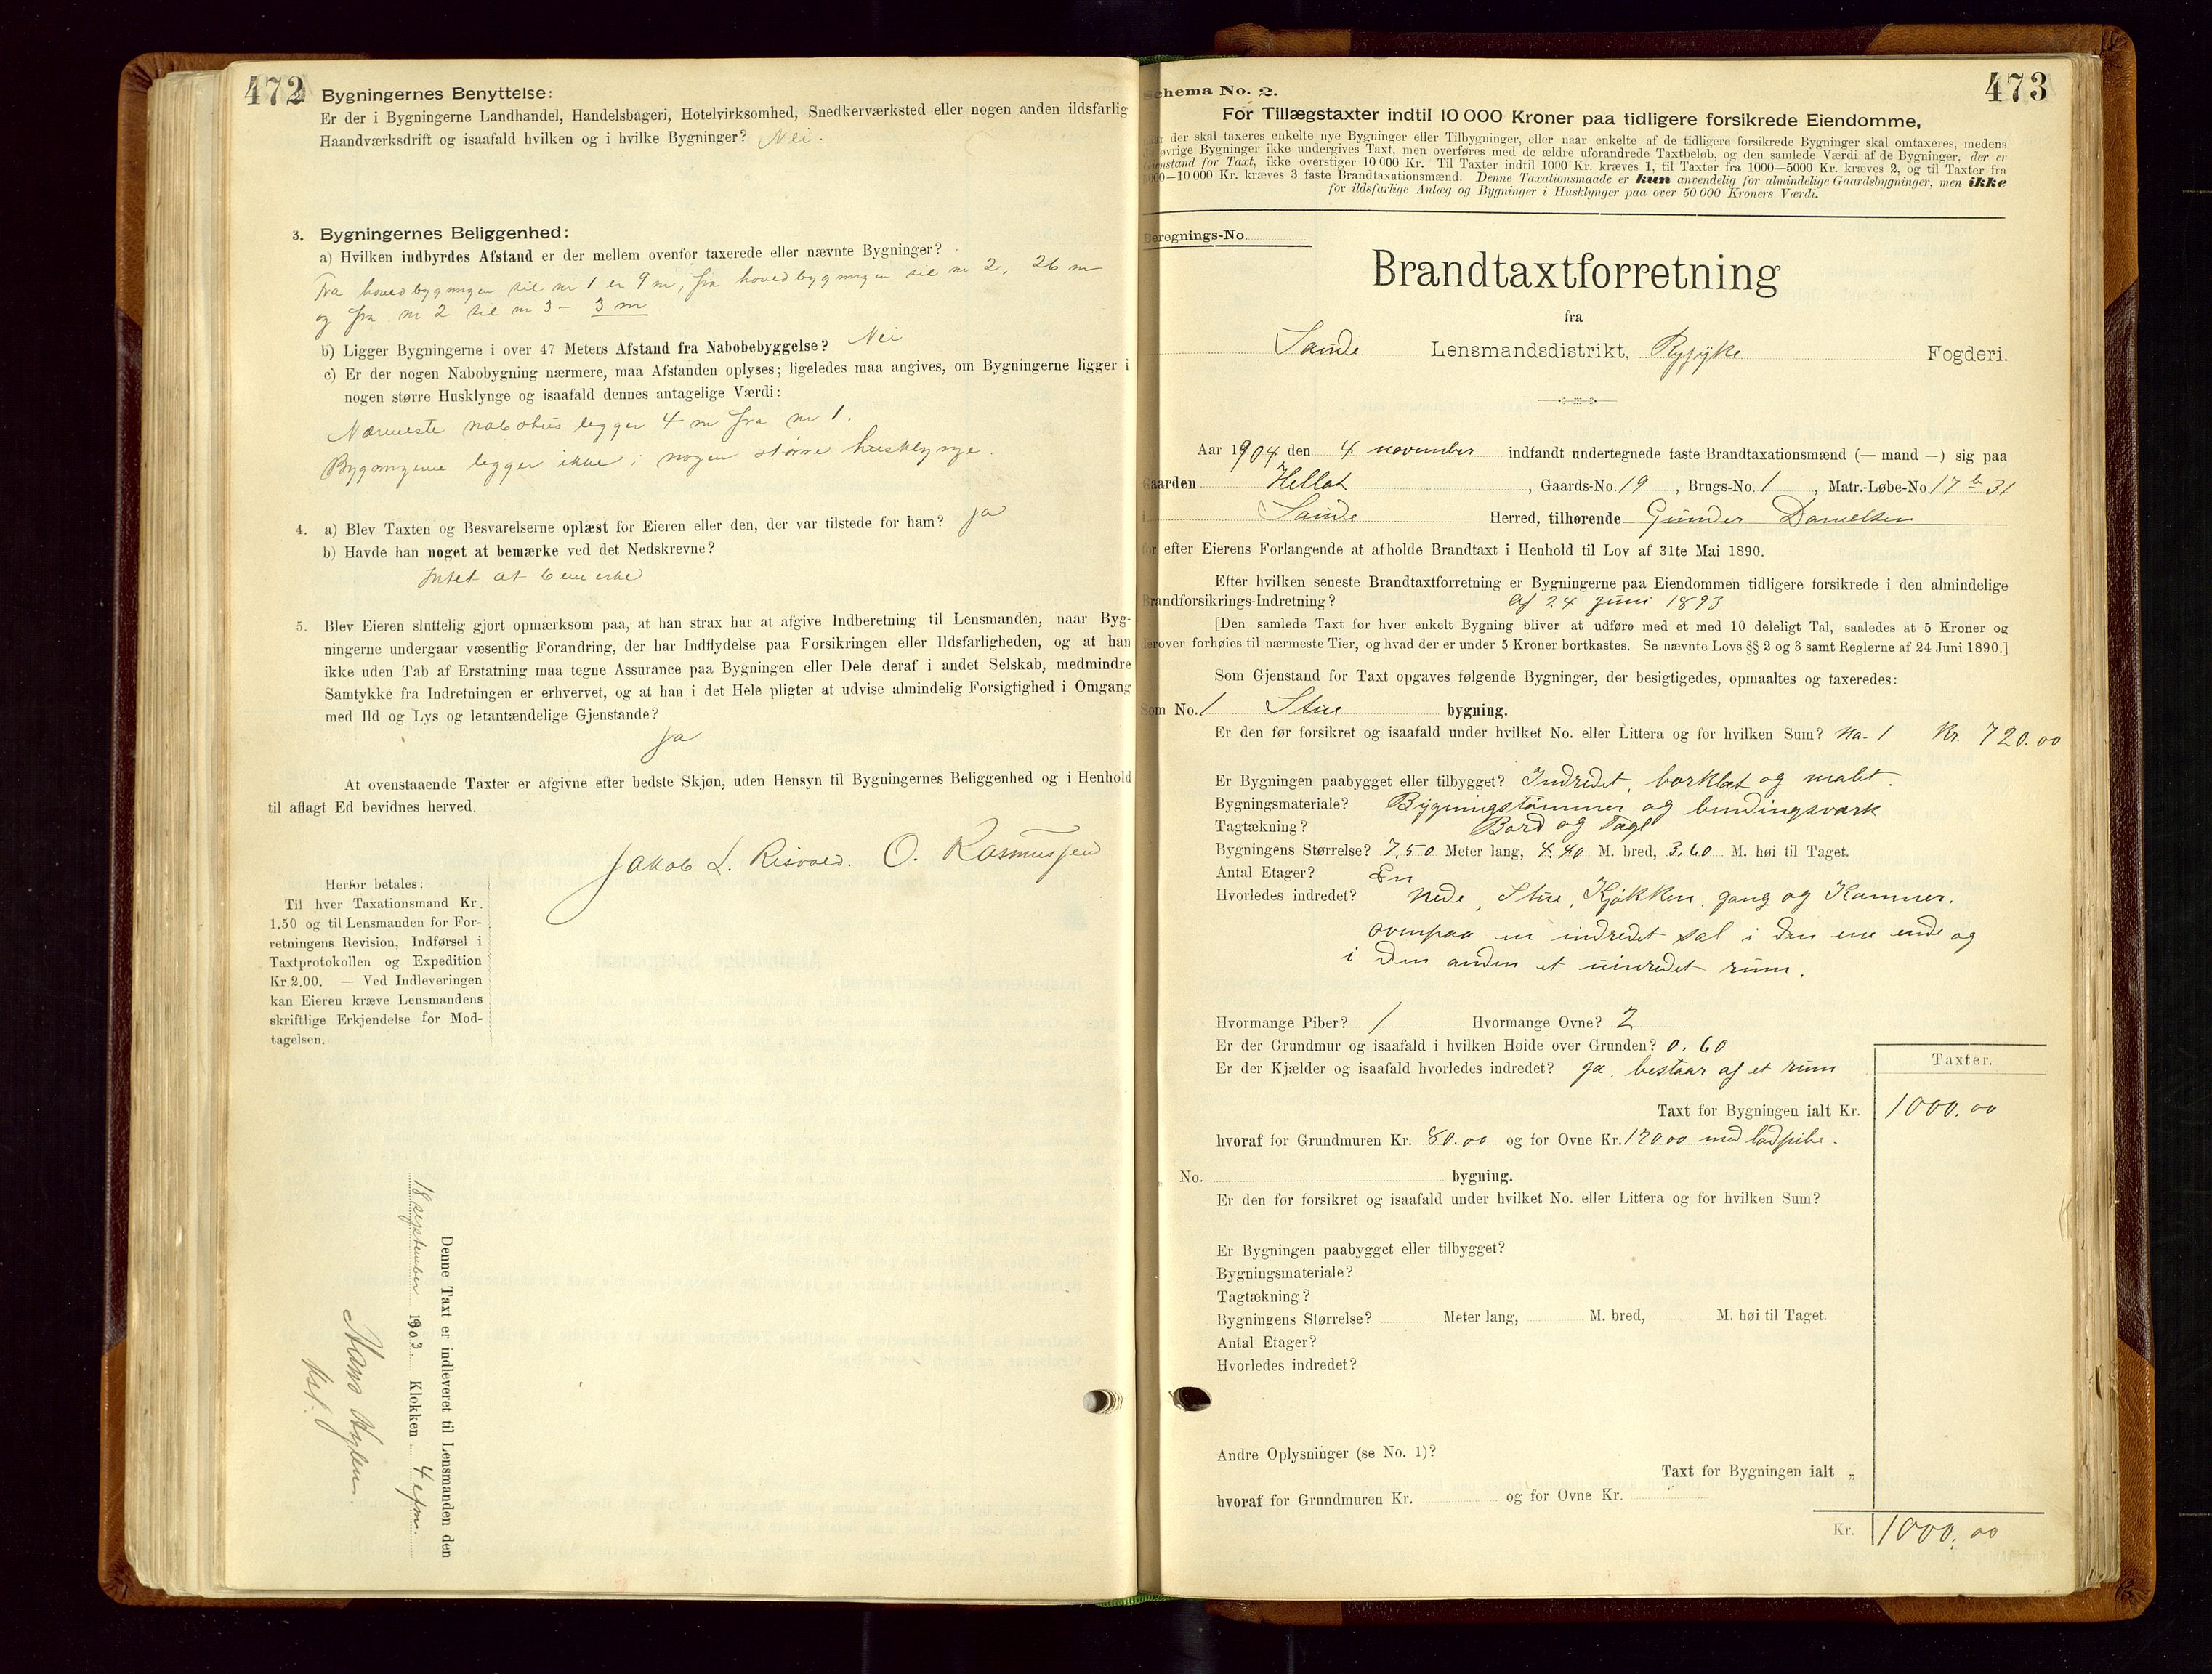 472
Bygningernes Benyttelse:
Er der i Bygningerne Landhandel, Handelsbageri, Hotelvirksomhed, Snedkerværksted eller nogen anden ildsfarlig
Haandværksdrift og isaafald hvilken og i hvilke Bygninger? Nei.
3. Bygningernes Beliggenhed:
a) Hvilken indbyrdes Afstand er der mellem ovenfor taxerede eller nævnte Bygninger?
Fra hovedbygningen til nr 1 er 9 m, fra hovedbygningen til nr 2, 26 m
og fra nr 2 til nr 3 - 3 m
b) Ligger Bygningerne i over 47 Meters Afstand fra Nabobebyggelse? Nei
c) Er der nogen Nabobygning nærmere, maa Afstanden oplyses; ligeledes maa angives, om Bygningerne ligger i
nogen større Husklynge og isaafald dennes antagelige Værdi:
Nærmeste nabohus legger 4 m fra nr 1.
Bygningerne legger ikke i nogen større husklynge.
4. a) Blev Taxten og Besvarelserne oplæst for Eieren eller den, der var tilstede for ham? Ja
b) Havde han noget at bemærke ved det Nedskrevne?
Intet at bemerke
5. Blev Eieren sluttelig gjort opmærksom paa, at han strax har at afgive Indberetning til Lensmanden, naar Byg-
ningerne undergaar væsentlig Forandring, der har Indflydelse paa Forsikringen eller Ildsfarligheden, og at han
ikke uden Tab af Erstatning maa tegne Assurance paa Bygningen eller Dele deraf i andet Selskab, medmindre
Samtykke fra Indretningen er erhvervet, og at han i det Hele pligter at udvise almindelig Forsigtighed i Omgang
med Ild og Lys og letantændelige Gjenstande?
Ja
At ovenstaaende Taxter er afgivne efter bedste Skjøn, uden Hensyn til Bygningernes Beliggenhed og i Henhold
til aflagt Ed bevidnes herved.
Jakob L. Risvold. O. Rasmussen
Herfor betales:
Til hver Taxationsmand Kr.
1.50 og til Lensmanden for For-
retningens Revision, Indførsel i
Taxtprotokollen og Expedition
Kr. 2.00. — Ved Indleveringen
kan Eieren kræve Lensmandens
skriftlige Erkjendelse for Mod-
tagelsen.
Denne Taxt er indleveret til Lensmanden den
18 september 1903 Klokken 4 efm.
Hans
473
Schema No. 2.
For Tillægstaxter indtil 10 000 Kroner paa tidligere forsikrede Eiendomme,
der skal taxeres enkelte nye Bygninger eller Tilbygninger, eller naar enkelte af de tidligere forsikrede Bygninger skal omtaxeres, medens
øvrige Bygninger ikke undergives Taxt, men overføres med de ældre uforandrede Taxtbeløb, og den samlede Værdi af de Bygninger, der er
Gjenstand for Taxt, ikke overstiger 10 000 Kr. Til Taxter indtil 1000 Kr. kræves 1, til Taxter fra 1000—5000 Kr. kræves 2, og til Taxter fra
5000—10 000 Kr. kræves 3 faste Brandtaxationsmænd. Denne Taxationsmaade er kun anvendelig for almindelige Gaardsbygninger, men ikke
for ildsfarlige Anlæg og Bygninger i Husklynger paa over 50 000 Kroners Værdi.
Beregnings-No.
Brandtaxtforretning
fra
Sande Lensmandsdistrikt, Ryfylke Fogderi.
Aar 1904 den 4 november indfandt undertegnede faste Brandtaxationsmænd (— mand —) sig paa
Gaarden , Gaards-No. 19 , Brugs-No. 1 , Matr.-Løbe-No. 17 b 31
i Sande Herred, tilhørende Gunder Danielsen
for efter Eierens Forlangende at afholde Brandtaxt i Henhold til Lov af 31te Mai 1890.
Efter hvilken seneste Brandtaxtforretning er Bygningerne paa Eiendommen tidligere forsikrede i den almindelige
Brandforsikrings-Indretning? Af 24 juni 1893
[Den samlede Taxt for hver enkelt Bygning bliver at udføre med et med 10 deleligt Tal, saaledes at 5 Kroner og
derover forhøies til nærmeste Tier, og hvad der er under 5 Kroner bortkastes. Se nævnte Lovs §§ 2 og 3 samt Reglerne af 24 Juni 1890.]
Som Gjenstand for Taxt opgaves følgende Bygninger, der besigtigedes, opmaaltes og taxeredes:
Som No. 1 Stue bygning.
Er den før forsikret og isaafald under hvilket No. eller Littera og for hvilken Sum? No. 1 Kr. 720.00
Er Bygningen paabygget eller tilbygget? Indredet, bordklæt og malet.
Bygningsmateriale? Bygningstømmer og bindingsværk
Tagtækning? Bord og Tagl
Bygningens Størrelse? 7,50 Meter lang, 4.40 M. bred, 3,60 M. høi til Taget.
Antal Etager? En
Hvorledes indredet? Nede, Stue, Kjøkken, gang og Kammer.
ovenpaa en indredet sal i den ene ende og
i den anden et uindredet rum.
Hvormange Piber? 1 Hvormange Ovne? 2
Er der Grundmur og isaafald i hvilken Høide over Grunden? 0.60
Er der Kjælder og isaafald hvorledes indredet? Ja, bestaar af et rum
Taxter.
Taxt for Bygningen ialt Kr. 1000.00
hvoraf for Grundmuren Kr. 80.00 og for Ovne Kr. 120.00 med
No. bygning.
Er den før forsikret og isaafald under hvilket No. eller Littera og for hvilken Sum?
Er Bygningen paabygget eller tilbygget?
Bygningsmateriale?
Tagtækning?
Bygningens Størrelse? Meter lang, M. bred, M. høi til Taget.
Antal Etager?
Hvorledes indredet?
Andre Oplysninger (se No. 1)?
Taxt for Bygningen ialt „
hvoraf for Grundmuren Kr. og for Ovne Kr.
Kr. 1000,00